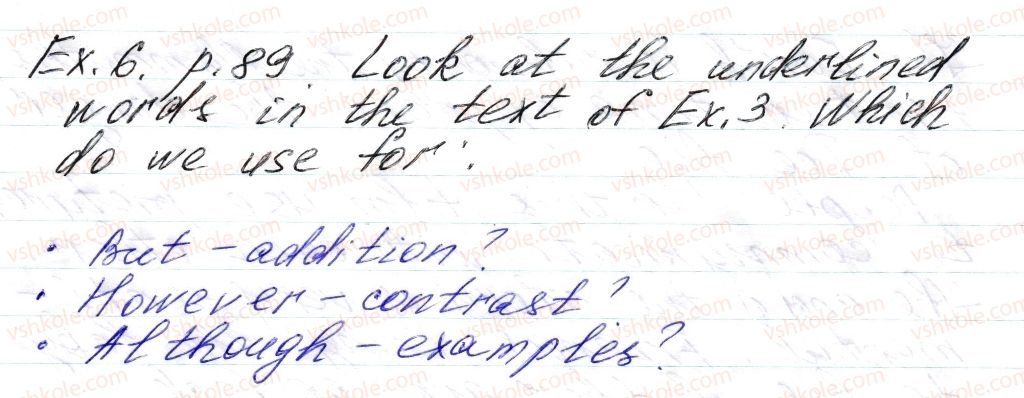 Ex. 6. p. 89 Look at the underlined
words in the text of Ex. 3. Which
do we use for:
• But – addition?
• However – contrast?
• Although – examples?